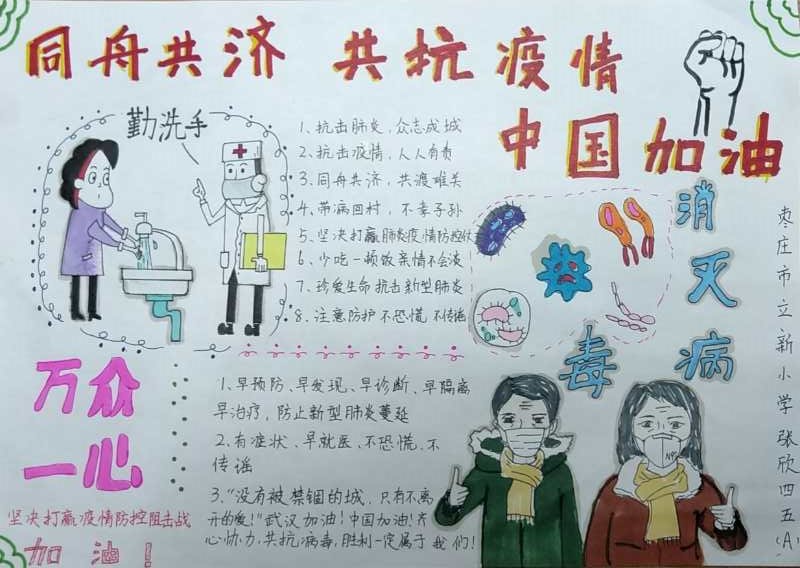 同舟共济 共抗疫情
中国加油
勤洗手
1、抗击肺炎，众志成城
2、抗击疫情，人人有责
3、同舟共济，共渡难关
4、带病回村，不孝子孙
5、坚决打赢肺炎疫情防控仗
6、少吃一顿饭亲情不会淡
7、珍爱生命抗击新型肺炎
8、注意防护不恐慌不传谣
消灭病毒
枣庄市立新小学张欣四五(A)
万众
一心
坚决打赢疫情防控阻击战
加油！
1、早预防、早发现、早诊断、早隔离
早治疗，防止新型肺炎蔓延
2、有症状、早就医、不恐慌、不
传谣
3、“没有被禁锢的城，只有不离
开的爱！”武汉加油！中国加油！齐
心协力，共抗病毒，胜利一定属于我们！